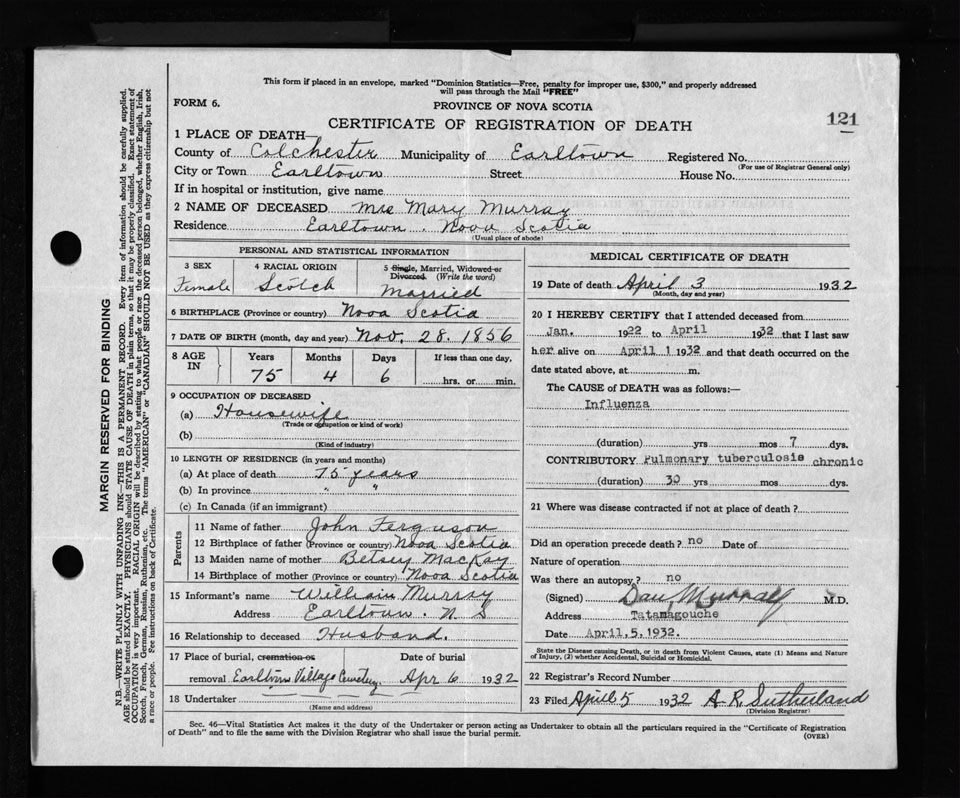 This form if placed in an envelope, marked "Dominion Statistics—Free, penalty for improper use, $300," and properly addressed
will pass through the Mail "FREE"
FORM 6.
PROVINCE OF NOVA SCOTIA
CERTIFICATE OF REGISTRATION OF DEATH
121
1 PLACE OF DEATH—
County of Colchester Municipality of Earltown Registered No.
(For use of Registrar General only)
City or Town Earltown Street House No.
If in hospital or institution, give name
2 NAME OF DECEASED Mrs Mary Murray
Residence Earltown . Nova Scotia
(Usual place of abode)
PERSONAL AND STATISTICAL INFORMATION
3 SEX
Female
4 RACIAL ORIGIN
Scotch
5 Single, Married, Widowed or
Divorced. (Write the word)
Married
6 BIRTHPLACE (Province or country) Nova Scotia
7 DATE OF BIRTH (month, day and year) Nov. 28. 1856
8 AGE IN
Years Months Days If less than one day,
75 4 6 hrs. or min.
9 OCCUPATION OF DECEASED
(a) Housewife
(Trade or occupation or kind of work)
(b)
(Kind of industry)
10 LENGTH OF RESIDENCE (in years and months)
(a) At place of death 75 years
(b) In province " "
(c) In Canada (if an immigrant)
Parents
11 Name of father John Ferguson
12 Birthplace of father (Province or country) Nova Scotia
13 Maiden name of mother Betsey MacKay
14 Birthplace of mother (Province or country) Nova Scotia
15 Informant's name William Murray
Address Earltown . N. S
16 Relationship to deceased Husband.
17 Place of burial, cremation or Date of burial
removal Earltown Village Cemetery. Apr 6 1932
18 Undertaker
(Name and address)
MEDICAL CERTIFICATE OF DEATH
19 Date of death April 3 1932
(Month, day and year)
20 I HEREBY CERTIFY that I attended deceased from
Jan. 1922 to April 1932 that I last saw
her alive on April 1 1932 and that death occurred on the
date stated above, at m.
The CAUSE of DEATH was as follows:—
Influenza
(duration) yrs mos 7 dys.
CONTRIBUTORY Pulmonary tuberculosis chronic
(duration) 30 yrs. mos. dys.
21 Where was disease contracted if not at place of death?
Did an operation precede death? no Date of
Nature of operation
Was there an autopsy? no
(Signed) Dan Murray M.D.
Address Tatamagouche
Date April, 5, 1932.
State the Disease causing Death, or in death from Violent Causes, state (1) Means and Nature
of Injury, (2) whether Accidental, Suicidal or Homicidal.
22 Registrar's Record Number
23 Filed April 5 1932 A. R. Sutherland
(Division Registrar)
Sec. 46—Vital Statistics Act makes it the duty of the Undertaker or person acting as Undertaker to obtain all the particulars required in the "Certificate of Registration
of Death" and to file the same with the Division Registrar who shall issue the burial permit.
(OVER)
MARGIN RESERVED FOR BINDING
N.B.—WRITE PLAINLY WITH UNFADING INK—THIS IS A PERMANENT RECORD. Every item of information should be carefully supplied.
AGE should be stated EXACTLY. PHYSICIANS should STATE CAUSE OF DEATH in plain terms, so that it may be properly classified. Exact statement of
OCCUPATION is very important. RACIAL ORIGIN will be described by stating to what people or race the deceased person belonged, whether English, Irish,
Scotch, French, German, Russian, Ruthenian, etc. The terms "AMERICAN" or "CANADIAN" SHOULD NOT BE USED as they express citizenship but not
a race or people. See instructions on back of Certificate.